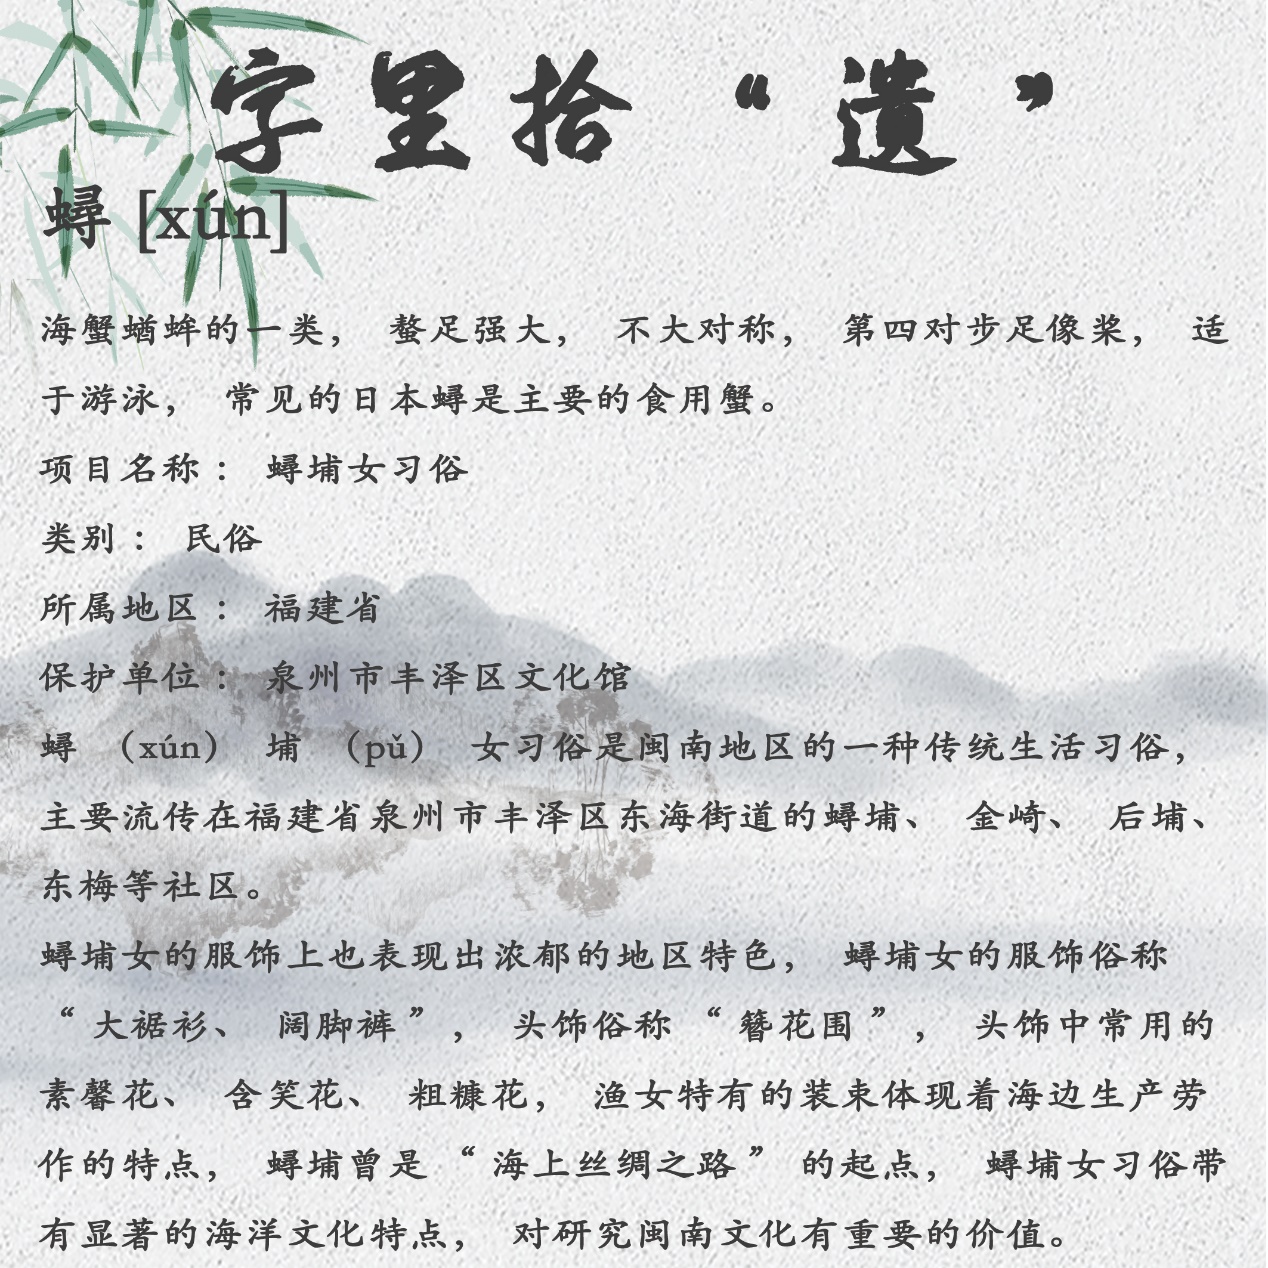 字里拾“遗”
蟳 [xún]
海蟹蝤蛑的一类， 螯足强大， 不大对称， 第四对步足像桨， 适
于游泳， 常见的日本蟳是主要的食用蟹。
项目名称： 蟳埔女习俗
类别： 民俗
所属地区： 福建省
保护单位： 泉州市丰泽区文化馆
蟳 （xún） 埔 （pǔ） 女习俗是闽南地区的一种传统生活习俗，
主要流传在福建省泉州市丰泽区东海街道的蟳埔、 金崎、 后埔、
东梅等社区。
蟳埔女的服饰上也表现出浓郁的地区特色， 蟳埔女的服饰俗称
“大裾衫、 阔脚裤”， 头饰俗称“簪花围”， 头饰中常用的
素馨花、 含笑花、 粗糠花， 渔女特有的装束体现着海边生产劳
作的特点， 蟳埔曾是“海上丝绸之路”的起点， 蟳埔女习俗带
有显著的海洋文化特点， 对研究闽南文化有重要的价值。